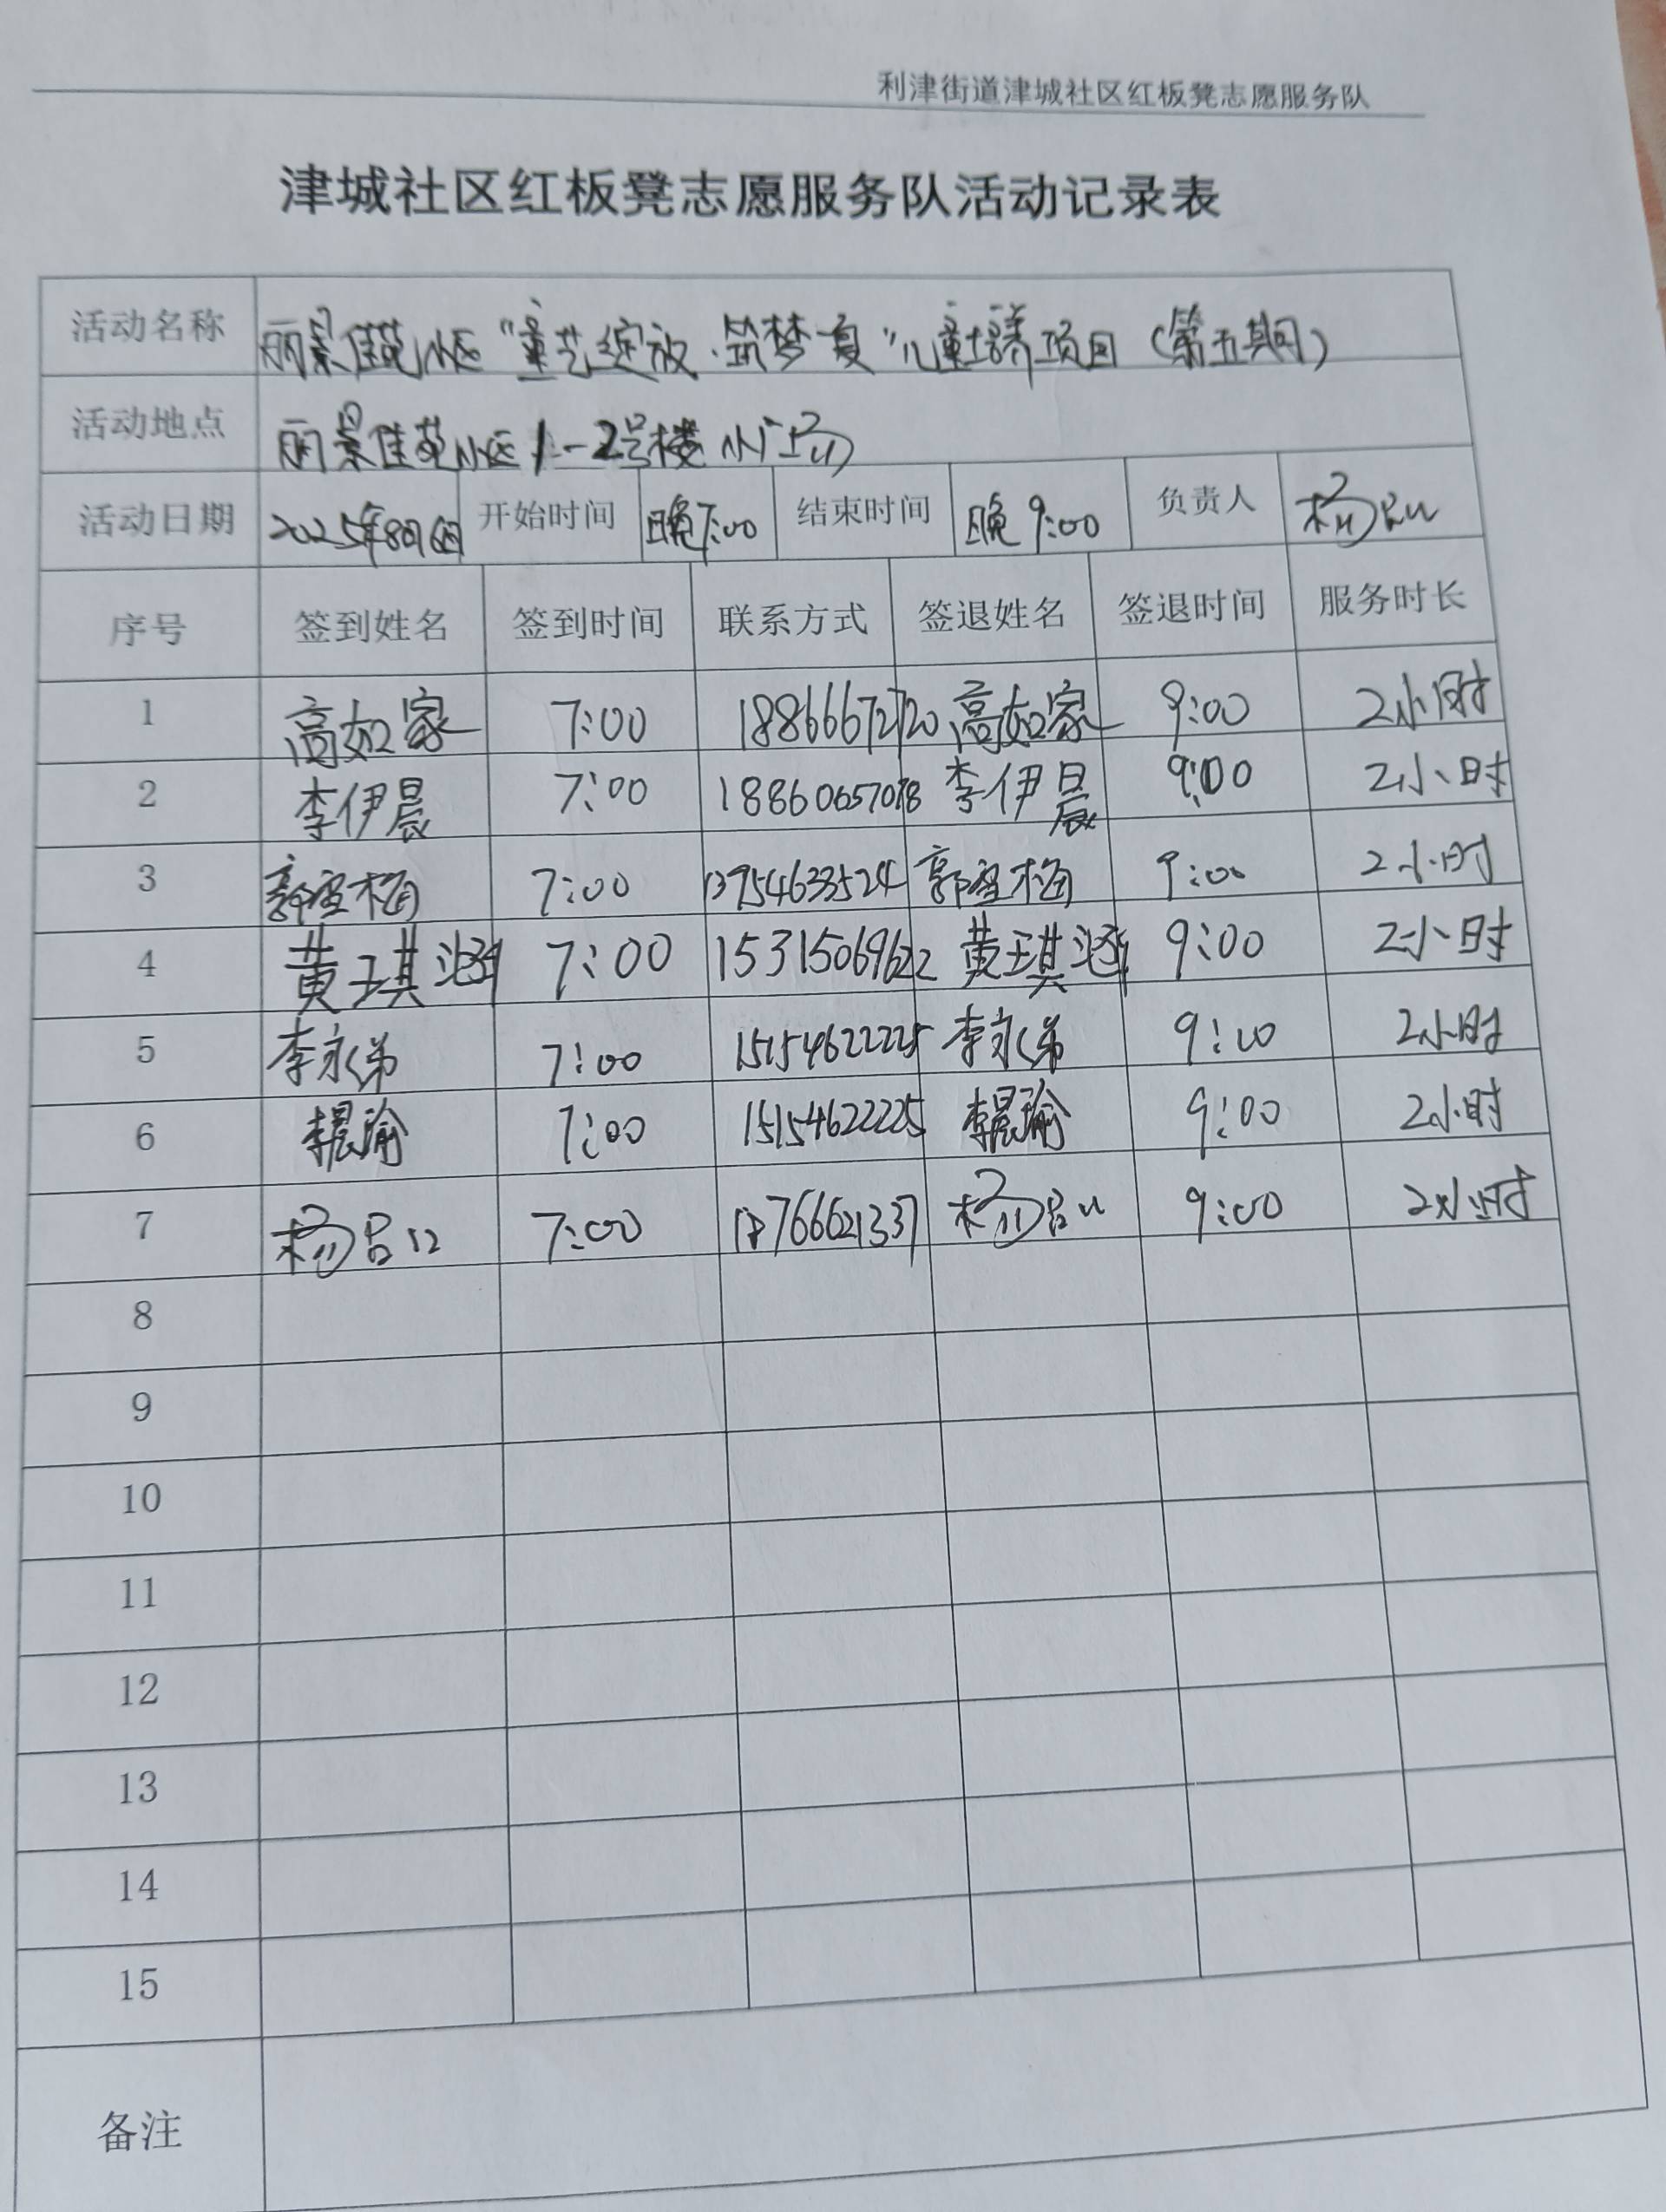 利津街道津城社区红板凳志愿服务队
津城社区红板凳志愿服务队活动记录表
活动名称 丽景佳苑小区“童艺绽放·筑梦夏”儿童培养项目（第五期）
活动地点 丽景佳苑小区1-2号楼小广场
活动日期 2025年8月6日 开始时间 晚7:00 结束时间 晚9:00 负责人 杨
序号 签到姓名 签到时间 联系方式 签退姓名 签退时间 服务时长
1 高如家 7:00 18866672720 高如家 9:00 2小时
2 李伊晨 7:00 李伊晨 9:00 2小时
3 郭雪梅 7:00 13954633524 郭雪梅 9:00 2小时
4 黄琪涵 7:00 15315069622 黄琪涵 9:00 2小时
5 李永弟 7:00 15154622225 李永弟 9:00 2小时
6 李晨瑜 7:00 15154622225 李晨瑜 9:00 2小时
7 杨 7:00 杨 9:00 2小时
8
9
10
11
12
13
14
15
备注